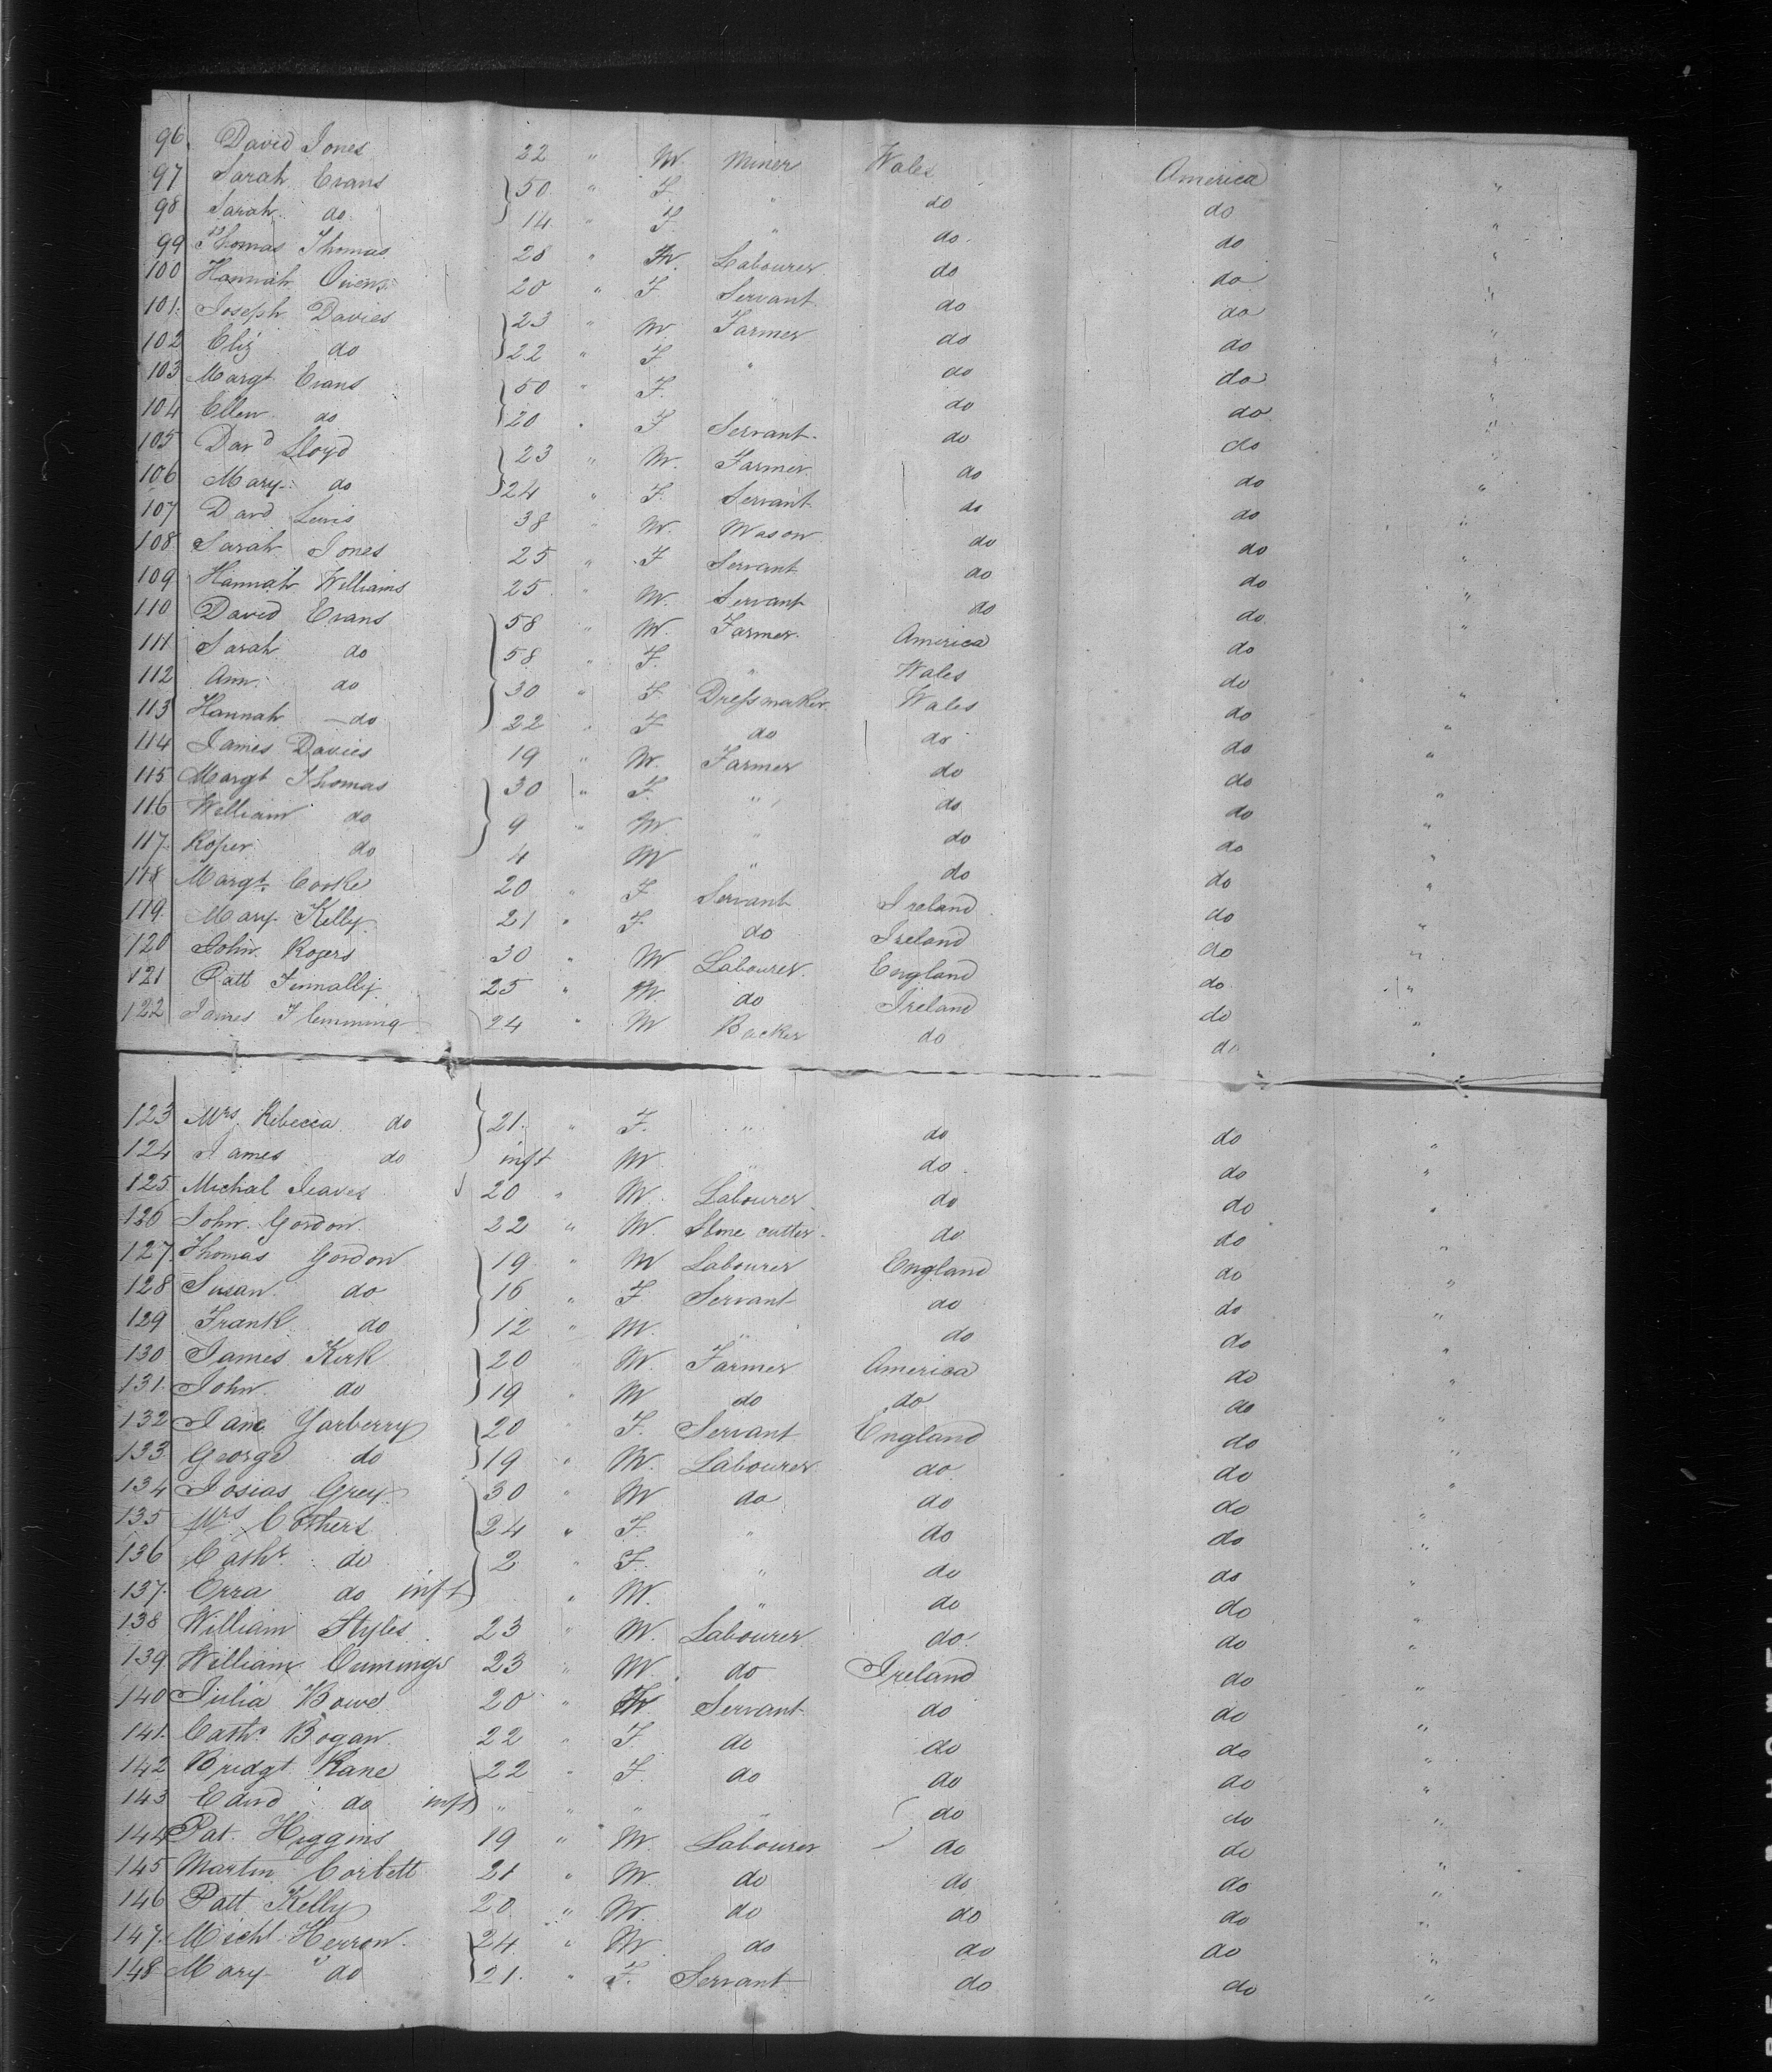 96. David Jones 22 " M. Miner Wales America "
97 Sarah Evans 50 " F. " do do "
98 Sarah do 14 " F. " do. do "
99 Thomas Thomas 28 " M. Labourer do do "
100 Hannah Owens 20 " F Servant do do "
101. Joseph Davies 23 " M. Farmer do do "
102 Eliz do 22 " F " do do "
103 Margt Evans 50 " F. " do do "
104 Ellen do 20 " F Servant do do "
105 Davd Lloyd 23 " M. Farmer do do "
106 Mary do 24 " F. Servant do do "
107 Davd Lewis 38 " M. Mason do do "
108 Sarah Jones 25 " F Servant do do "
109 Hannah Williams 25 " M. Servant do do "
110 David Evans 58 " M. Farmer America do "
111 Sarah do 58 " F. " Wales do "
112 Ann do 30 " F Dressmaker Wales do "
113 Hannah do 22 " F do do do "
114 James Davies 19 " M. Farmer do do "
115 Margt Thomas 30 " F. " do do "
116 William do 9 " M " do do "
117. do 4 M " do do "
118 Margt. 20 " F Servant Ireland do "
119. Mary Kelly 21 " F. do Ireland do "
120 John Rogers 30 " M Labourer England do "
121 Patt 25 " M do Ireland do "
122 James Flemming 24 " M Backer do do "
123 Mrs. Rebecca do 21. " F. " do do "
124 James do inft M. " do do "
125 Michal 20 " M. Labourer do do "
126 John Gordon 22 " M. Stone cutter do do "
127. Thomas Gordon 19 " M Labourer England do "
128 Susan do 16 " F Servant do do "
129 Frank do 12 " M. " do do "
130 James Kirk 20 " M. Farmer America do "
131. John do 19 " M do do do "
132 Jane Yarberry 20 " F. Servant England do "
133. George do 19 " M. Labourer do do "
134 Josias Grey 30 " M do do do "
135 Mrs Cothers 24 " F. " do do "
136 Cathr do 2 " F. " do do "
137. do inft " M. " do do "
138 William Styles 23 " M. Labourer do. do "
139 William Cumings 23 " M. do Ireland do "
140 Julia Bowe 20 " Servant do do "
141. Cathr Bogan 22 " F. do do do "
142 Bridgt Kane 22 " F. do do do "
143 Edwd do inft " " " " do do "
144 Pat. Higgins 19 " M. Labourer do do "
145 Martin Corbett 21 " M. do do do "
146 Patt Kelly 20 " M. do do do "
147. Michl Herron 24 " M. do do do "
148 Mary do 21. " F. Servant do do "